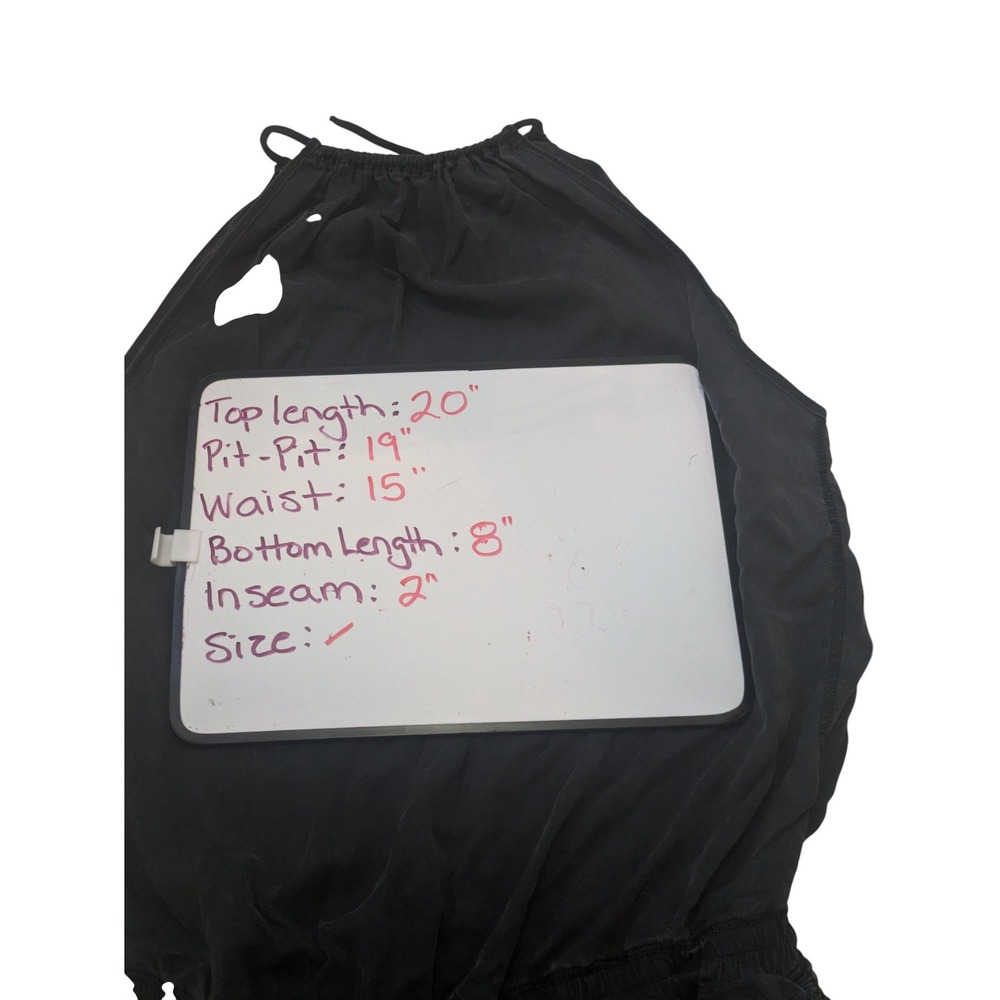 Top length: 20"
Pit-Pit: 19"
Waist: 15"
Bottom Length: 8"
Inseam: 2"
Size: ✓